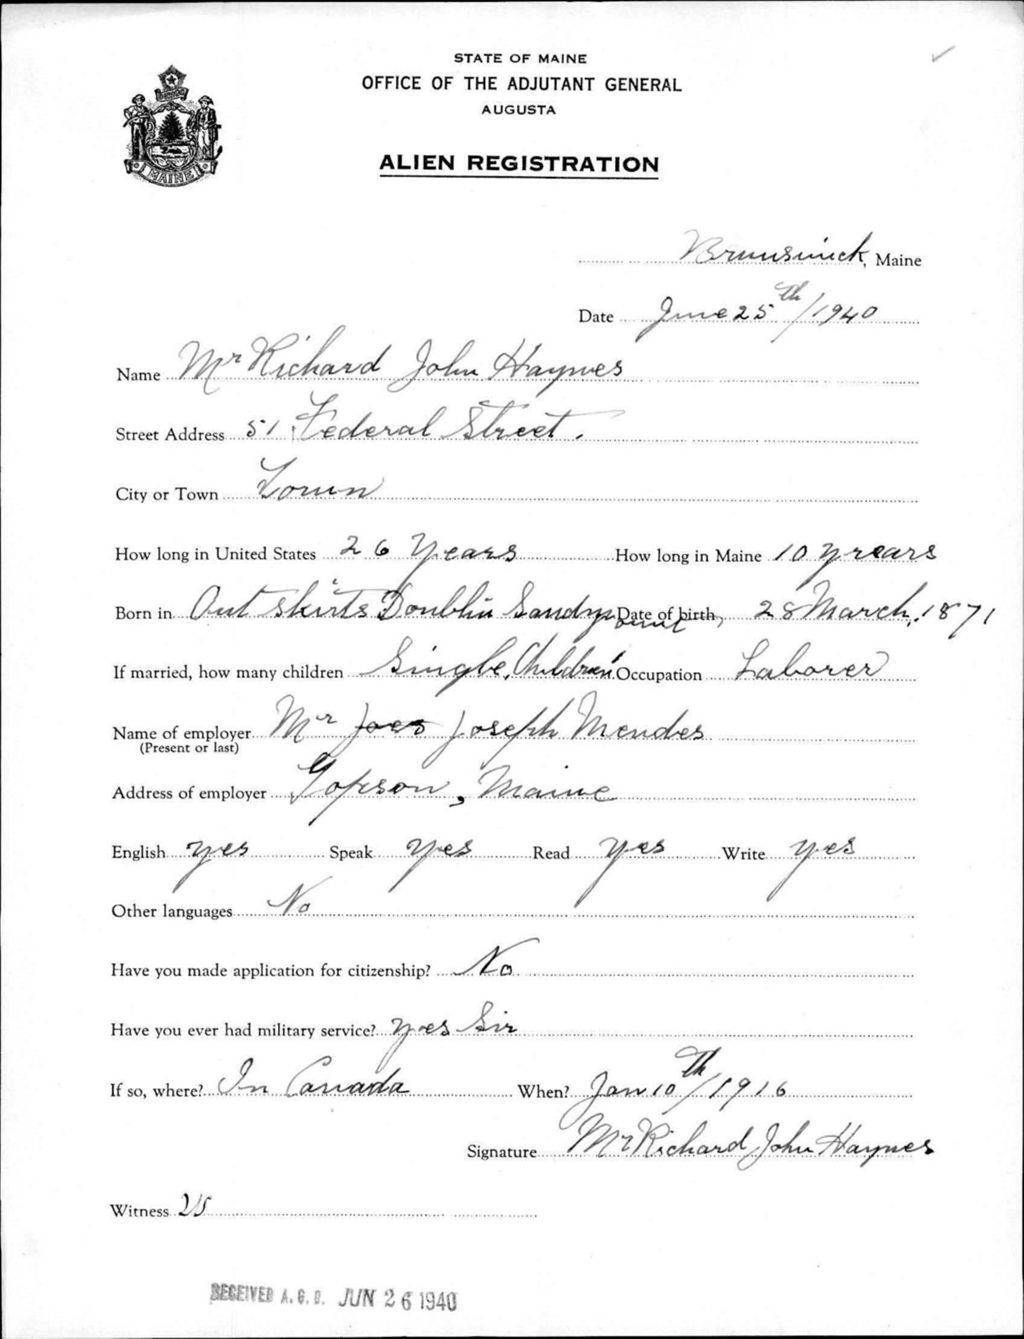 STATE OF MAINE
OFFICE OF THE ADJUTANT GENERAL
AUGUSTA
ALIEN REGISTRATION
MAINE
Brunswick, Maine
Date June 25th/1940
Name Mr Richard John Haynes
Street Address 51 Federal Street.
City or Town Town
How long in United States 26 Years How long in Maine 10 yrears
Born in Out Skirts Doublin Sandy Date of birth, 28 March, 1871
If married, how many children Single, Children Occupation Laborer
Name of employer Mr Joes Joseph Mendes
(Present or last)
Address of employer Topson, Maine
English yes Speak yes Read yes Write yes
Other languages No
Have you made application for citizenship? No
Have you ever had military service? yes Sir
If so, where? In Canada When? Jan 10th/1916
Signature Mr Richard John Haynes
Witness
RECEIVED A.G.O. JUN 26 1940